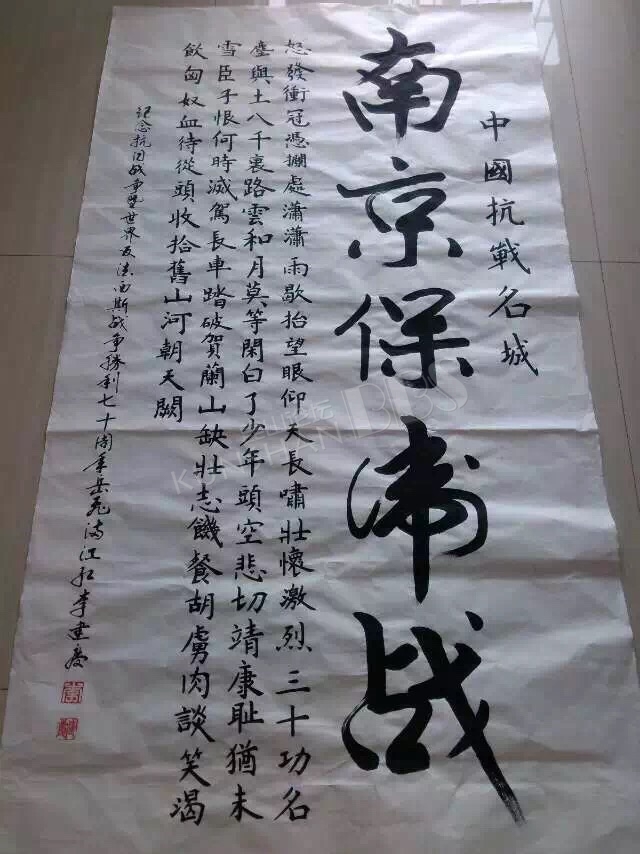 中國抗戰名城
南京保衛战
怒發衝冠憑攔處瀟瀟雨歇抬望眼仰天長嘯壯懷激烈三十功名
塵與土八千裏路雲和月莫等閑白了少年頭空悲切靖康耻猶未
雪臣子恨何時滅駕長車踏破賀蘭山缺壯志饑餐胡虜肉談笑渴
飲匈奴血待從頭收拾舊山河朝天闕
记念抗日战争暨世界反法西斯战争勝利七十周年岳飛满江红李建慶
BBS